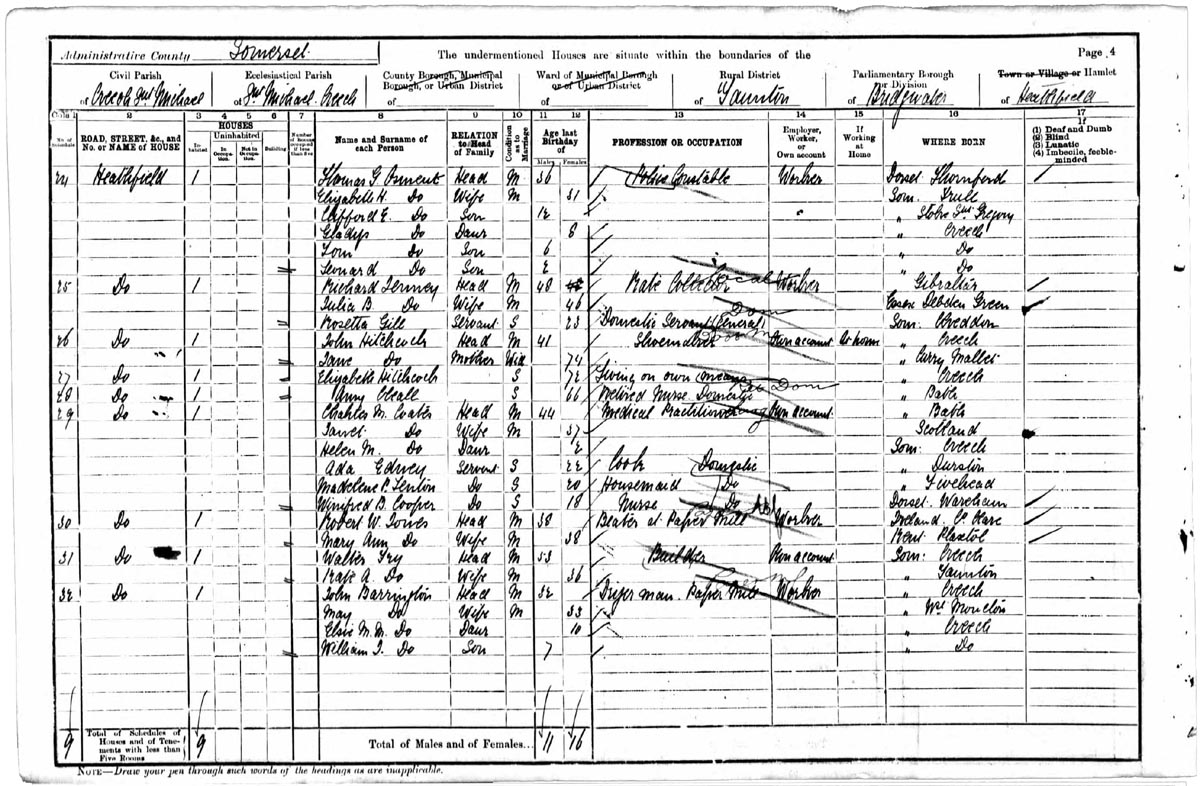 Administrative County Somerset. The undermentioned Houses are situate within the boundaries of the Page 4
Civil Parish Ecclesiastical Parish County Borough, Municipal Borough, or Urban District Ward of Municipal Borough or of Urban District Rural District Parliamentary Borough or Division Town or Village or Hamlet
of Creech Snt Michael of Snt Michael Creech of of of Taunton of Bridgwater of Heathfield
1 2 3 4 5 6 7 8 9 10 11 12 13 14 15 16 17
No. of Schedule ROAD, STREET, &c., and No. or NAME of HOUSE HOUSES Inhabited Uninhabited In Occupation. Not in Occupation. Building Number of Rooms occupied if less than five Name and Surname of each Person RELATION to Head of Family Condition as to Marriage Age last Birthday of Males Females PROFESSION OR OCCUPATION Employer, Worker, or Own account If Working at Home WHERE BORN If (1) Deaf and Dumb (2) Blind (3) Lunatic (4) Imbecile, feeble-minded
24 Heathfield 1 Thomas G. Osment Head M 36 Police Constable Worker Dorset Thornford
Elizabeth H. Do Wife M 31 Som: Trull
Clifford E. Do Son 12 " Stoke Snt Gregory
Gladys Do Daur 8 " Creech
Tom Do Son 6 " Do
Leonard Do Son 2 " Do
25 Do 1 Richard Head M 48 Rate Collector Local Worker Gibraltar
Julia B. Do Wife M 46 Essex Debden Green
Rosetta Gill Servant S 23 Domestic Servant (General) Dom Som: Cheddon
26 Do 1 John Hitchcock Head M 41 Shoemaker Own account At home " Creech
Jane Do Mother Wid 74 " Curry Mallet
27 Do 1 Elizabeth Hitchcock S 72 Living on own means " Creech
28 Do 1 S 66 Retired Nurse Domestic Ret Dom " Bath
29 Do 1 Charles M. Coates Head M 44 Medical Practitioner Own account " Bath
Janet Do Wife M 37 Scotland
Helen M. Do Daur 12 Som: Creech
Ada Edney Servant S 22 Cook Domestic " Durston
Madelene P. Fenton Do S 20 Housemaid Do " Fivehead
Winifred B. Cooper Do S 18 Nurse Do Dorset. Wareham
30 Do 1 Robert W. Head M 38 Beater at Paper Mill Worker Ireland
Mary Ann Do Wife M 38 Kent Plaxtol
31 Do 1 Walter Fry Head M 53 Builder Own account Som: Creech
Kate A. Do Wife M 36 " Taunton
32 Do 1 John Barrington Head M 32 Paper Mill Worker " Creech
May Do Wife M 33 " Wt. Monkton
Elsie M. M. Do Daur 10 " Creech
William J. Do Son 7 " Do
9 Total of Schedules of Houses and of Tenements with less than Five Rooms 9 Total of Males and of Females... 11 16
NOTE—Draw your pen through such words of the headings as are inapplicable.